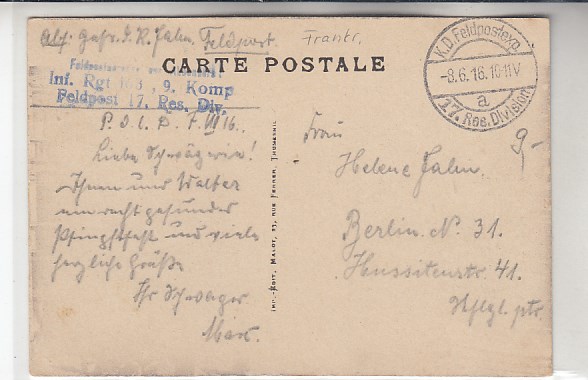 Feldpost.
Frankr.
CARTE POSTALE
Inf. Rgt 163, 9. Komp
Feldpost 17. Res. Div.
K.D. Feldpostexp.
-8.6.16. 10-11V
a
17. Res. Division
9,-
Liebe Schwägerin!
Ihnen und Walter
ein recht gesundes
Pfingstfest und viele
herzliche Grüße
Ihr Schwager
Max.
IMP.-ÉDIT. MALOT, 23, RUE FERRER, THUMESNIL
Frau
Helene Jahn.
Berlin. N. 31.
Hussitenstr. 41.
Hflgl. ptr.